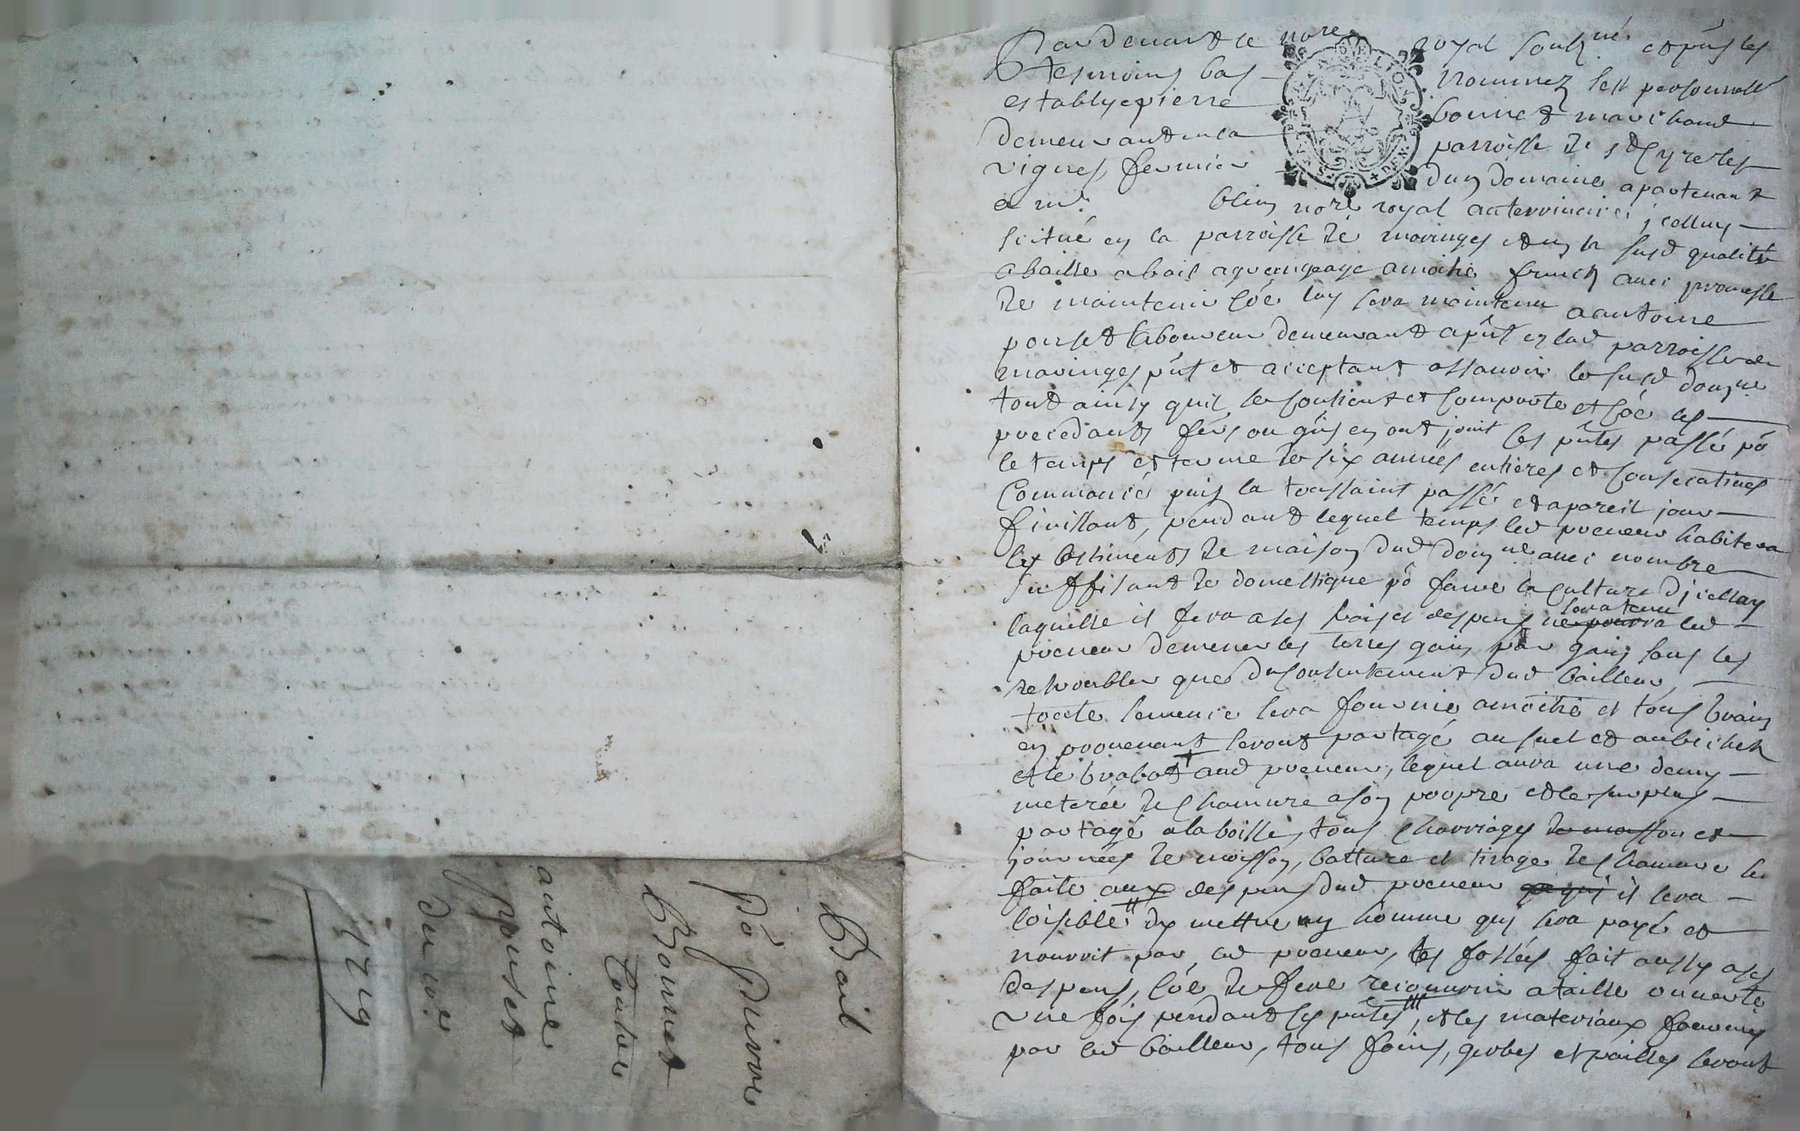 Pardevant le nore royal soubné et pns les
tesmoins bas nommez sest personnellt
establye pierre bonnet marchand
demeurant en la parroisse de st Cyre les
vignes, fermier dun domaine apartenant
a mr blein nore royal
scitué en la parroisse de maringes et en la susd qualitté
a baillé a bail a grangeage a moitié fruicts avec promesse
de maintenir coe luy sera maintenu a antoine
pouset laboureur demeurant a pnt en lad parroisse de
maringes pnt et acceptant assavoir le susd domne
tout ainsy quil se contient et comporte et coe les
precedants fers ou gers en ont jouit les pntes passé po
le temps et terme de six années entieres et consecutives
Commancé puis la toussaint passé et a pareil jour
finissant, pendant lequel temps led preneur habitera
les bastiments de maison dud domne avec nombre
suffisant de domestique po faire la culture dicelluy
laquelle il fera a ses frais et despens ne pourra sera tenu led
preneur de mener les terres gain par gain sans les
retroubler que du consentement dud bailleur
toute semence sera fournie a moitié et tous grains
en provenant seront partagé au suel et au bichet
et le trabat aud preneur, lequel aura une demy
meterée de chanvre a son propre et le surplus
partagé a la boille, tous charriages de moisson et
journées de moisson, batture et tirage de chanvre se
faite aux despens dud preneur il sera
loisible dy mettre un homme qui sera payé et
nourrit par led preneur, les fossés fait aussy a ses
despens, coe de fere recouvrir a taille ouverte
une fois pendant les pntes, et les materiaux fournis
par led bailleur, tous foins, gerbes et pailles seront
Bail
po
Bonnet
Contre
antoine
pouset
du
1719